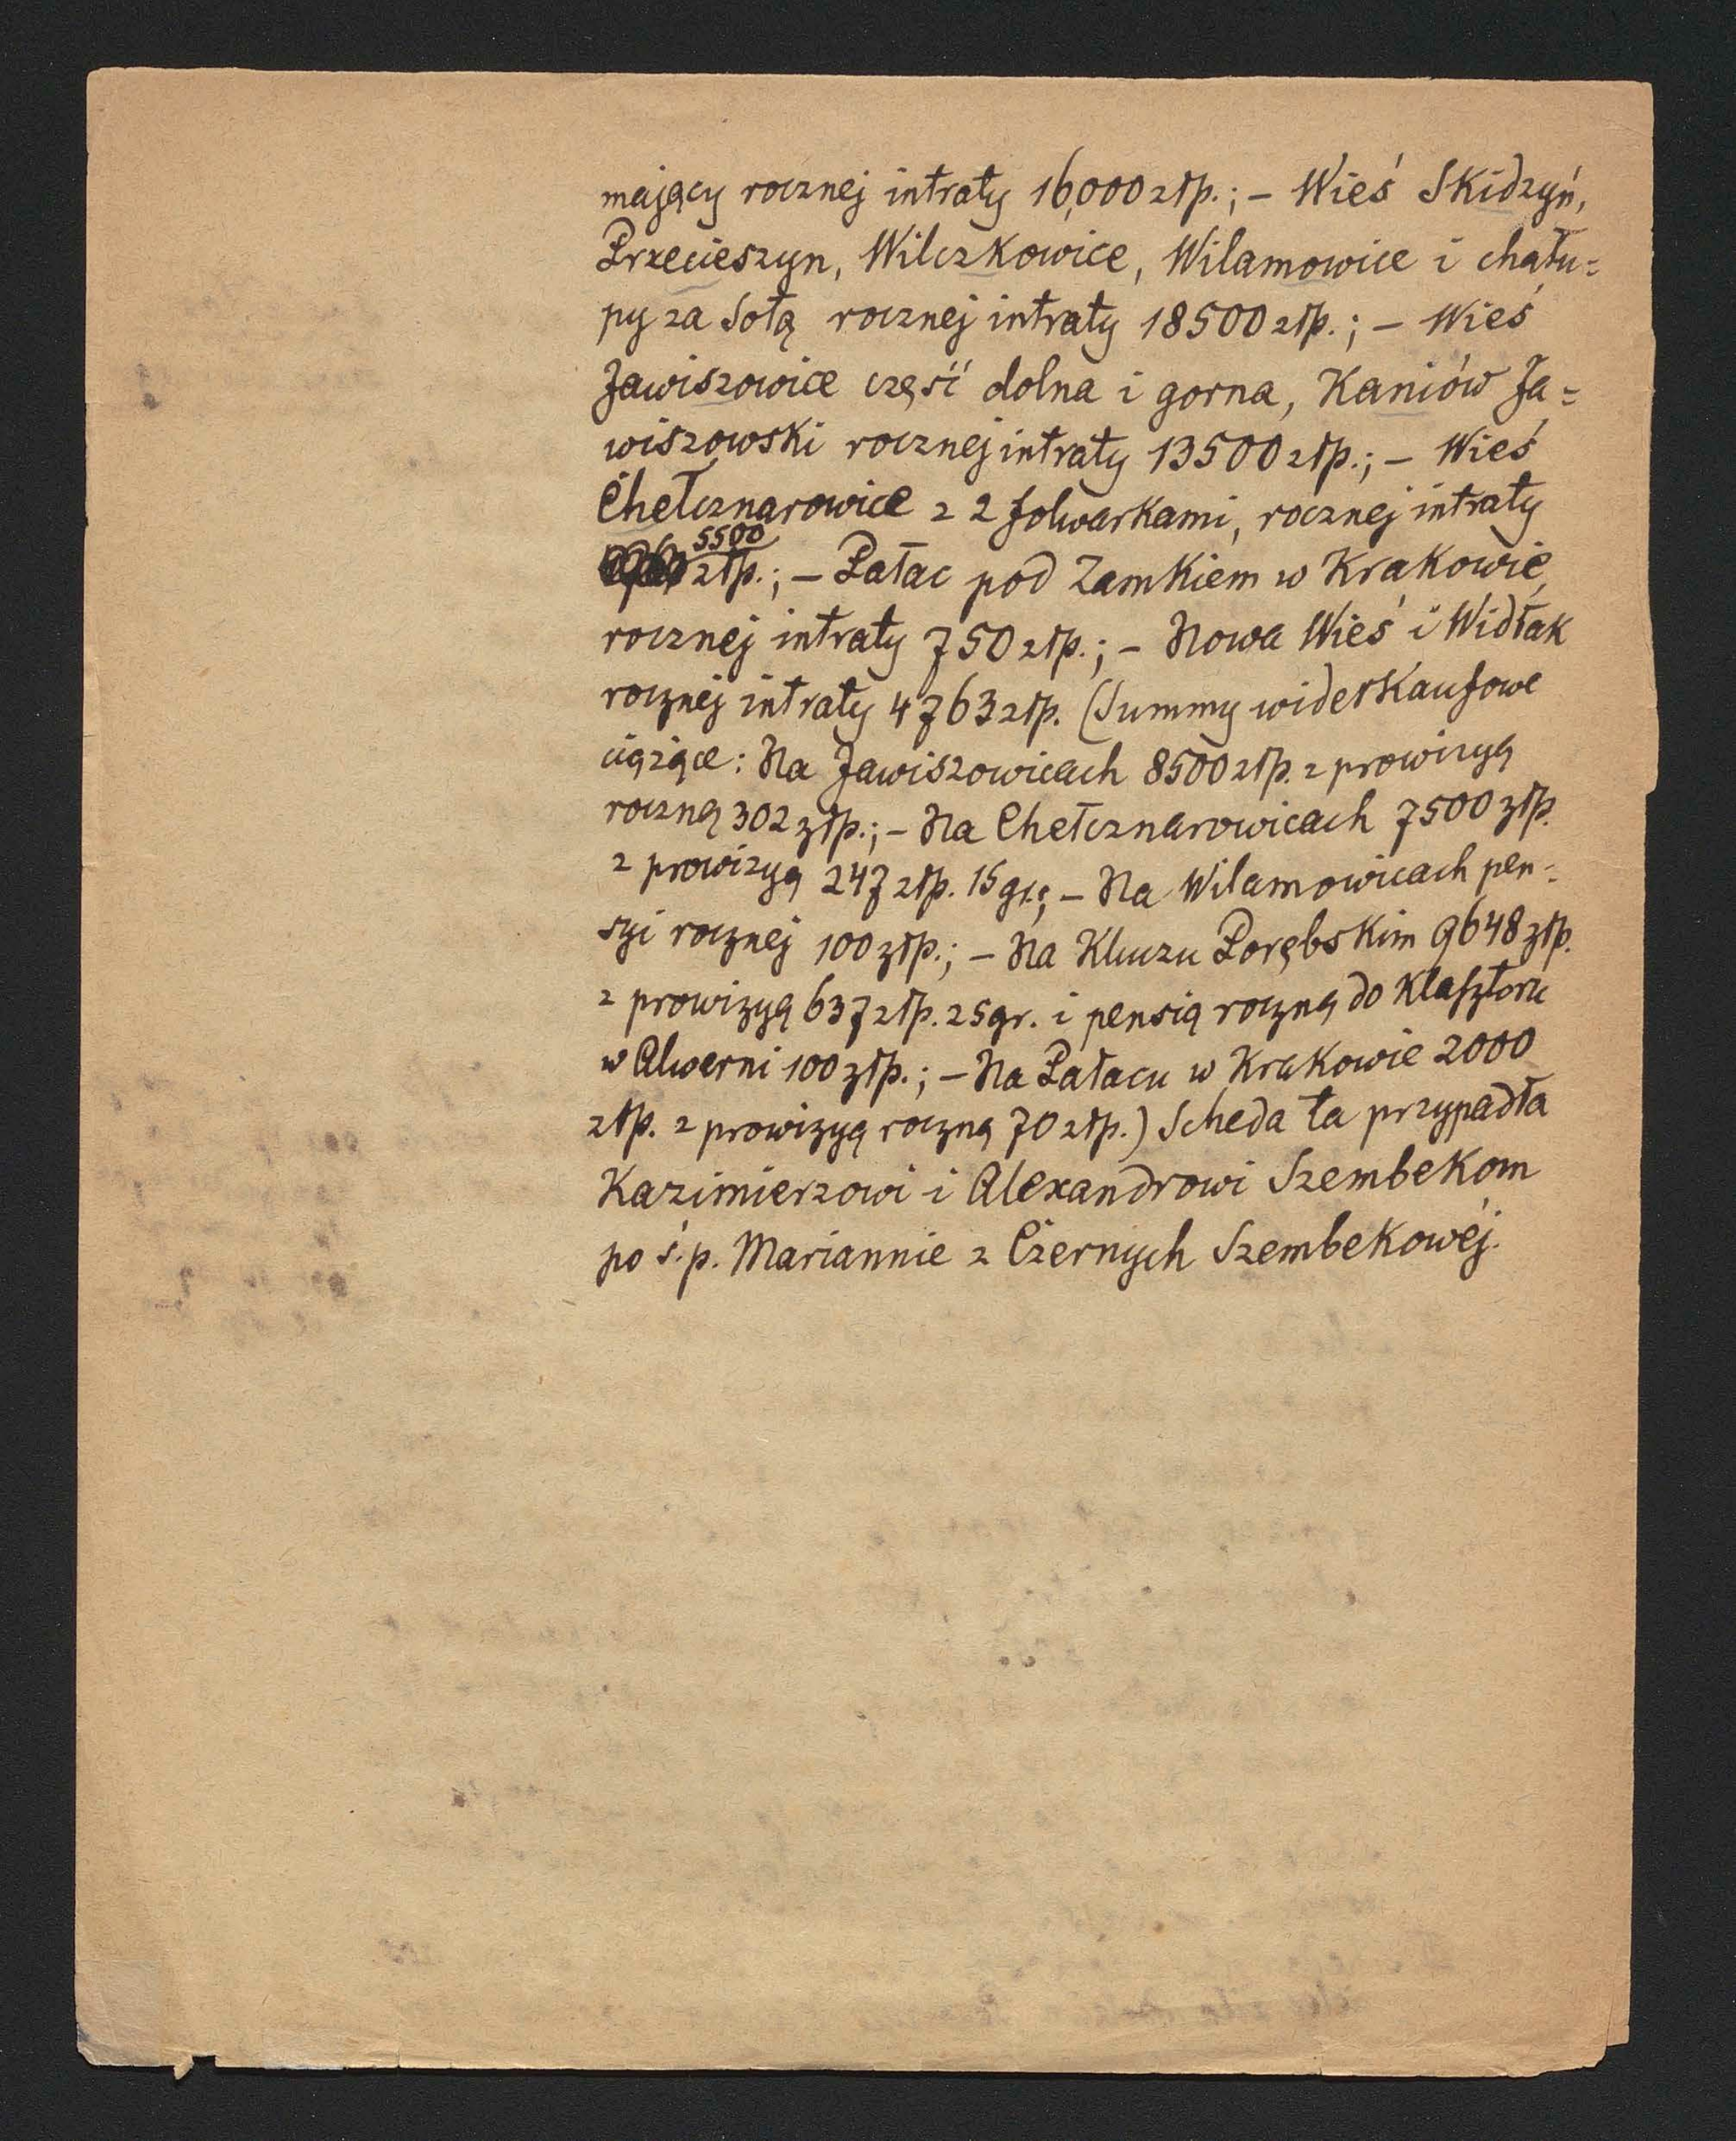 mający rocznej intraty 16,000 złp.; – Wieś Skidzyń,
Przecieszyn, Wilczkowice, Wilamowice i chału=
py za Sołą rocznej intraty 18500 złp.; – Wieś
Jawiszowice część dolna i gorna, Kaniów Ja=
wiszowski rocznej intraty 13500 złp.; – Wieś
Chełcznarowice z 2 folwarkami, rocznej intraty
5500
złp.; – Pałac pod Zamkiem w Krakowie,
rocznej intraty 750 złp.; – Nowa Wieś i Widłak
rocznej intraty 4763 złp. (Summy widerkaufowe
ciążące: Na Jawiszowicach 8500 złp. z prowizyą
roczną 302 złp.; – Na Chełcznarowicach 7500 złp.
z prowizyą 247 złp. 15 gr.; – Na Wilamowicach pen=
syi rocznej 100 złp.; – Na Kluczu Porębskim 9648 złp.
z prowizyą 637 złp. 25 gr. i pensią roczną do Klasztoru
w Alwerni 100 złp.; – Na Pałacu w Krakowie 2000
złp. z prowizyą roczną 70 złp.) Scheda ta przypadła
Kazimierzowi i Alexandrowi Szembekom
po ś.p. Mariannie z Czernych Szembekowéj.